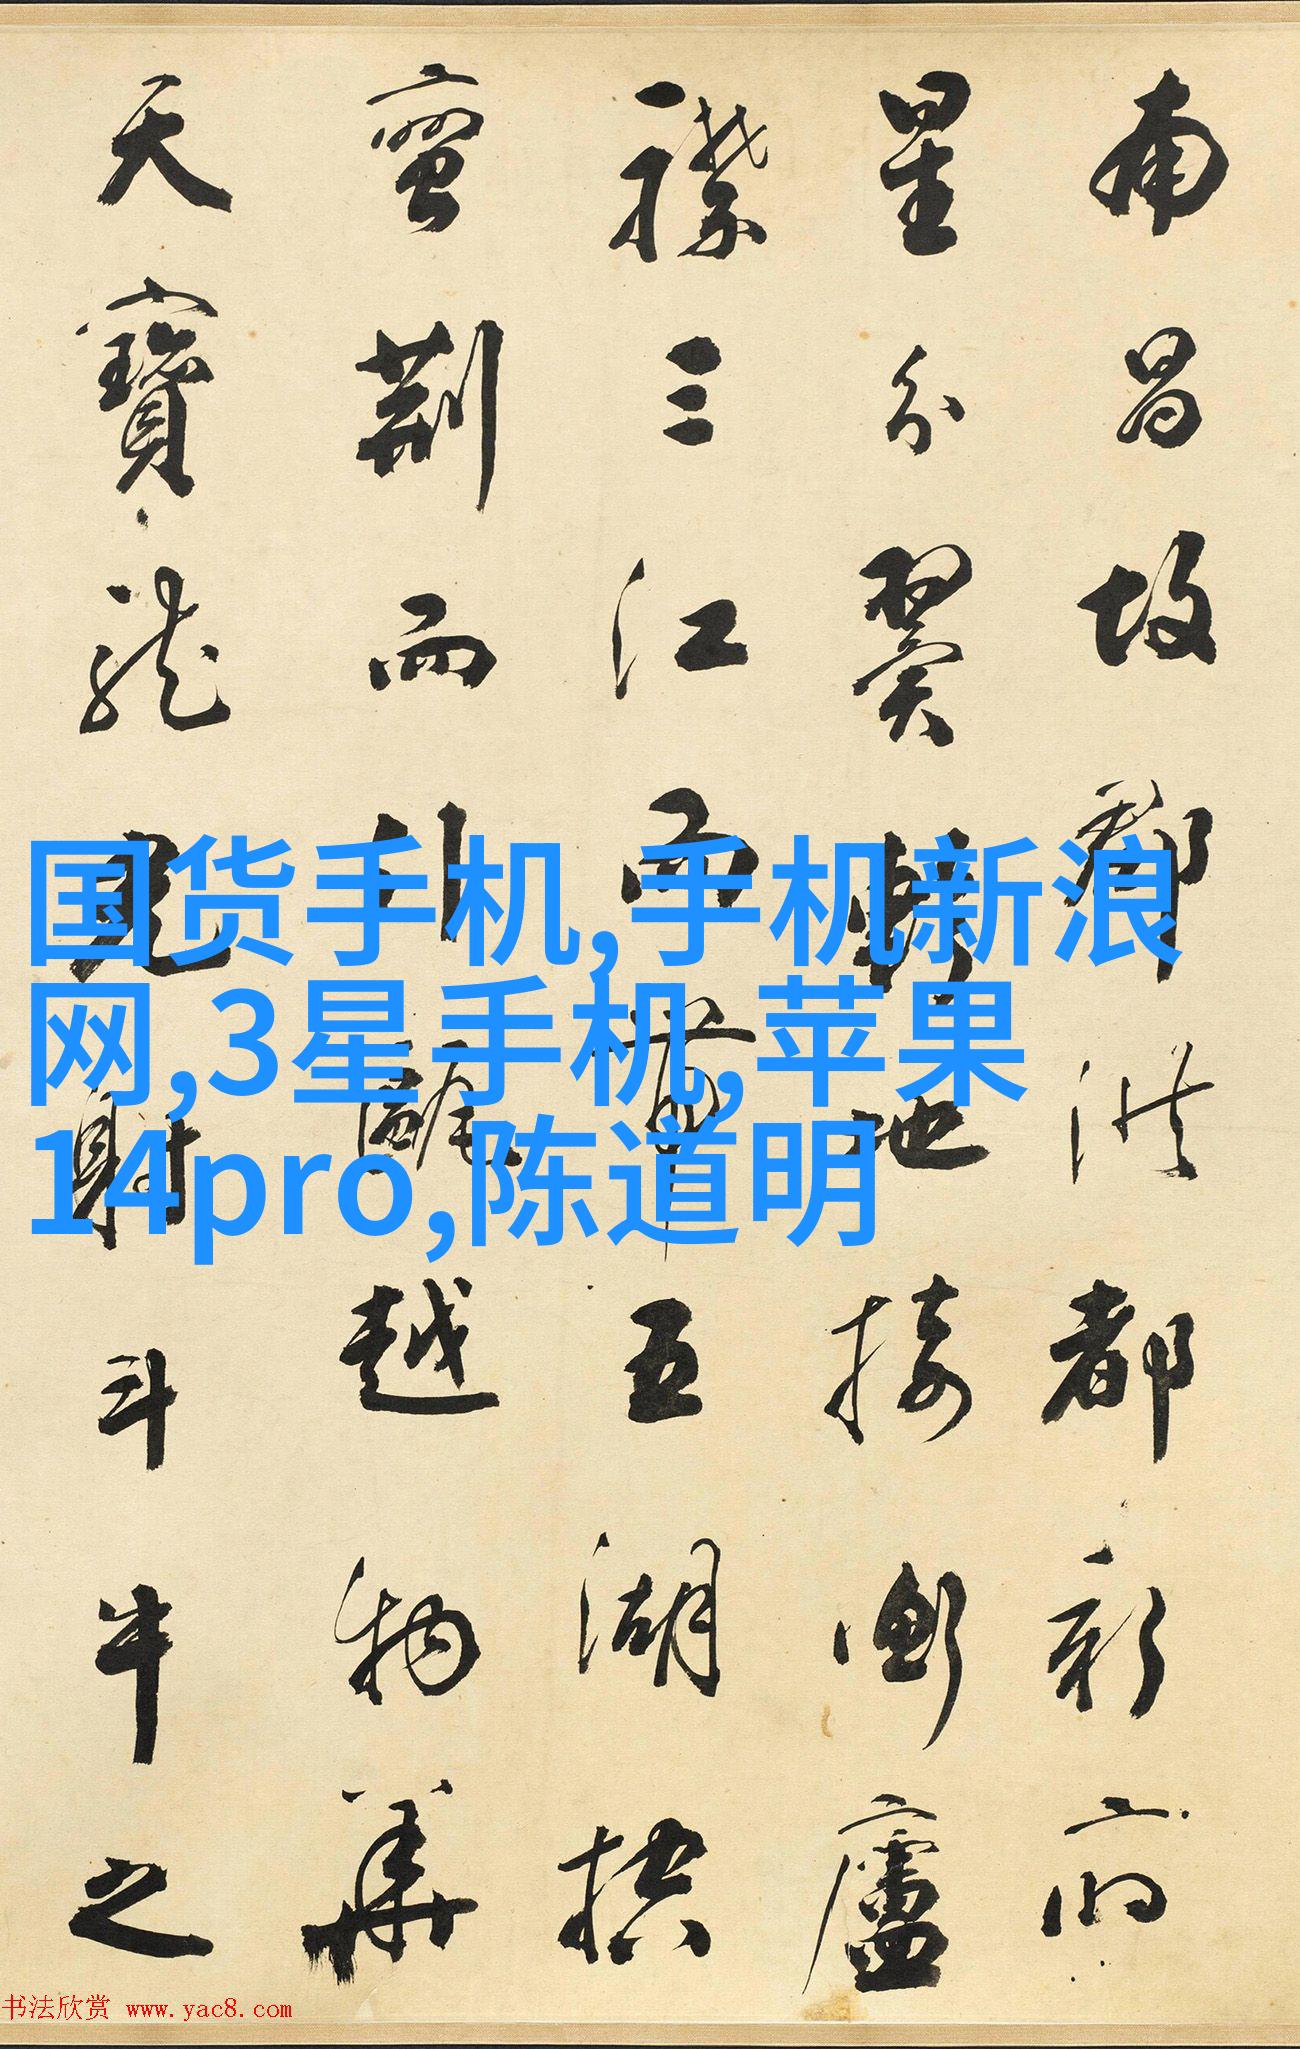 南昌故郡洪都新府
星分翼軫地接衡廬
襟三江而帶五湖控
蠻荊而引甌越物華
天寶龍光射斗牛之
国货手机,手机新浪
网,3星手机,苹果
14pro,陈道明
书法欣赏 www.yac8.com